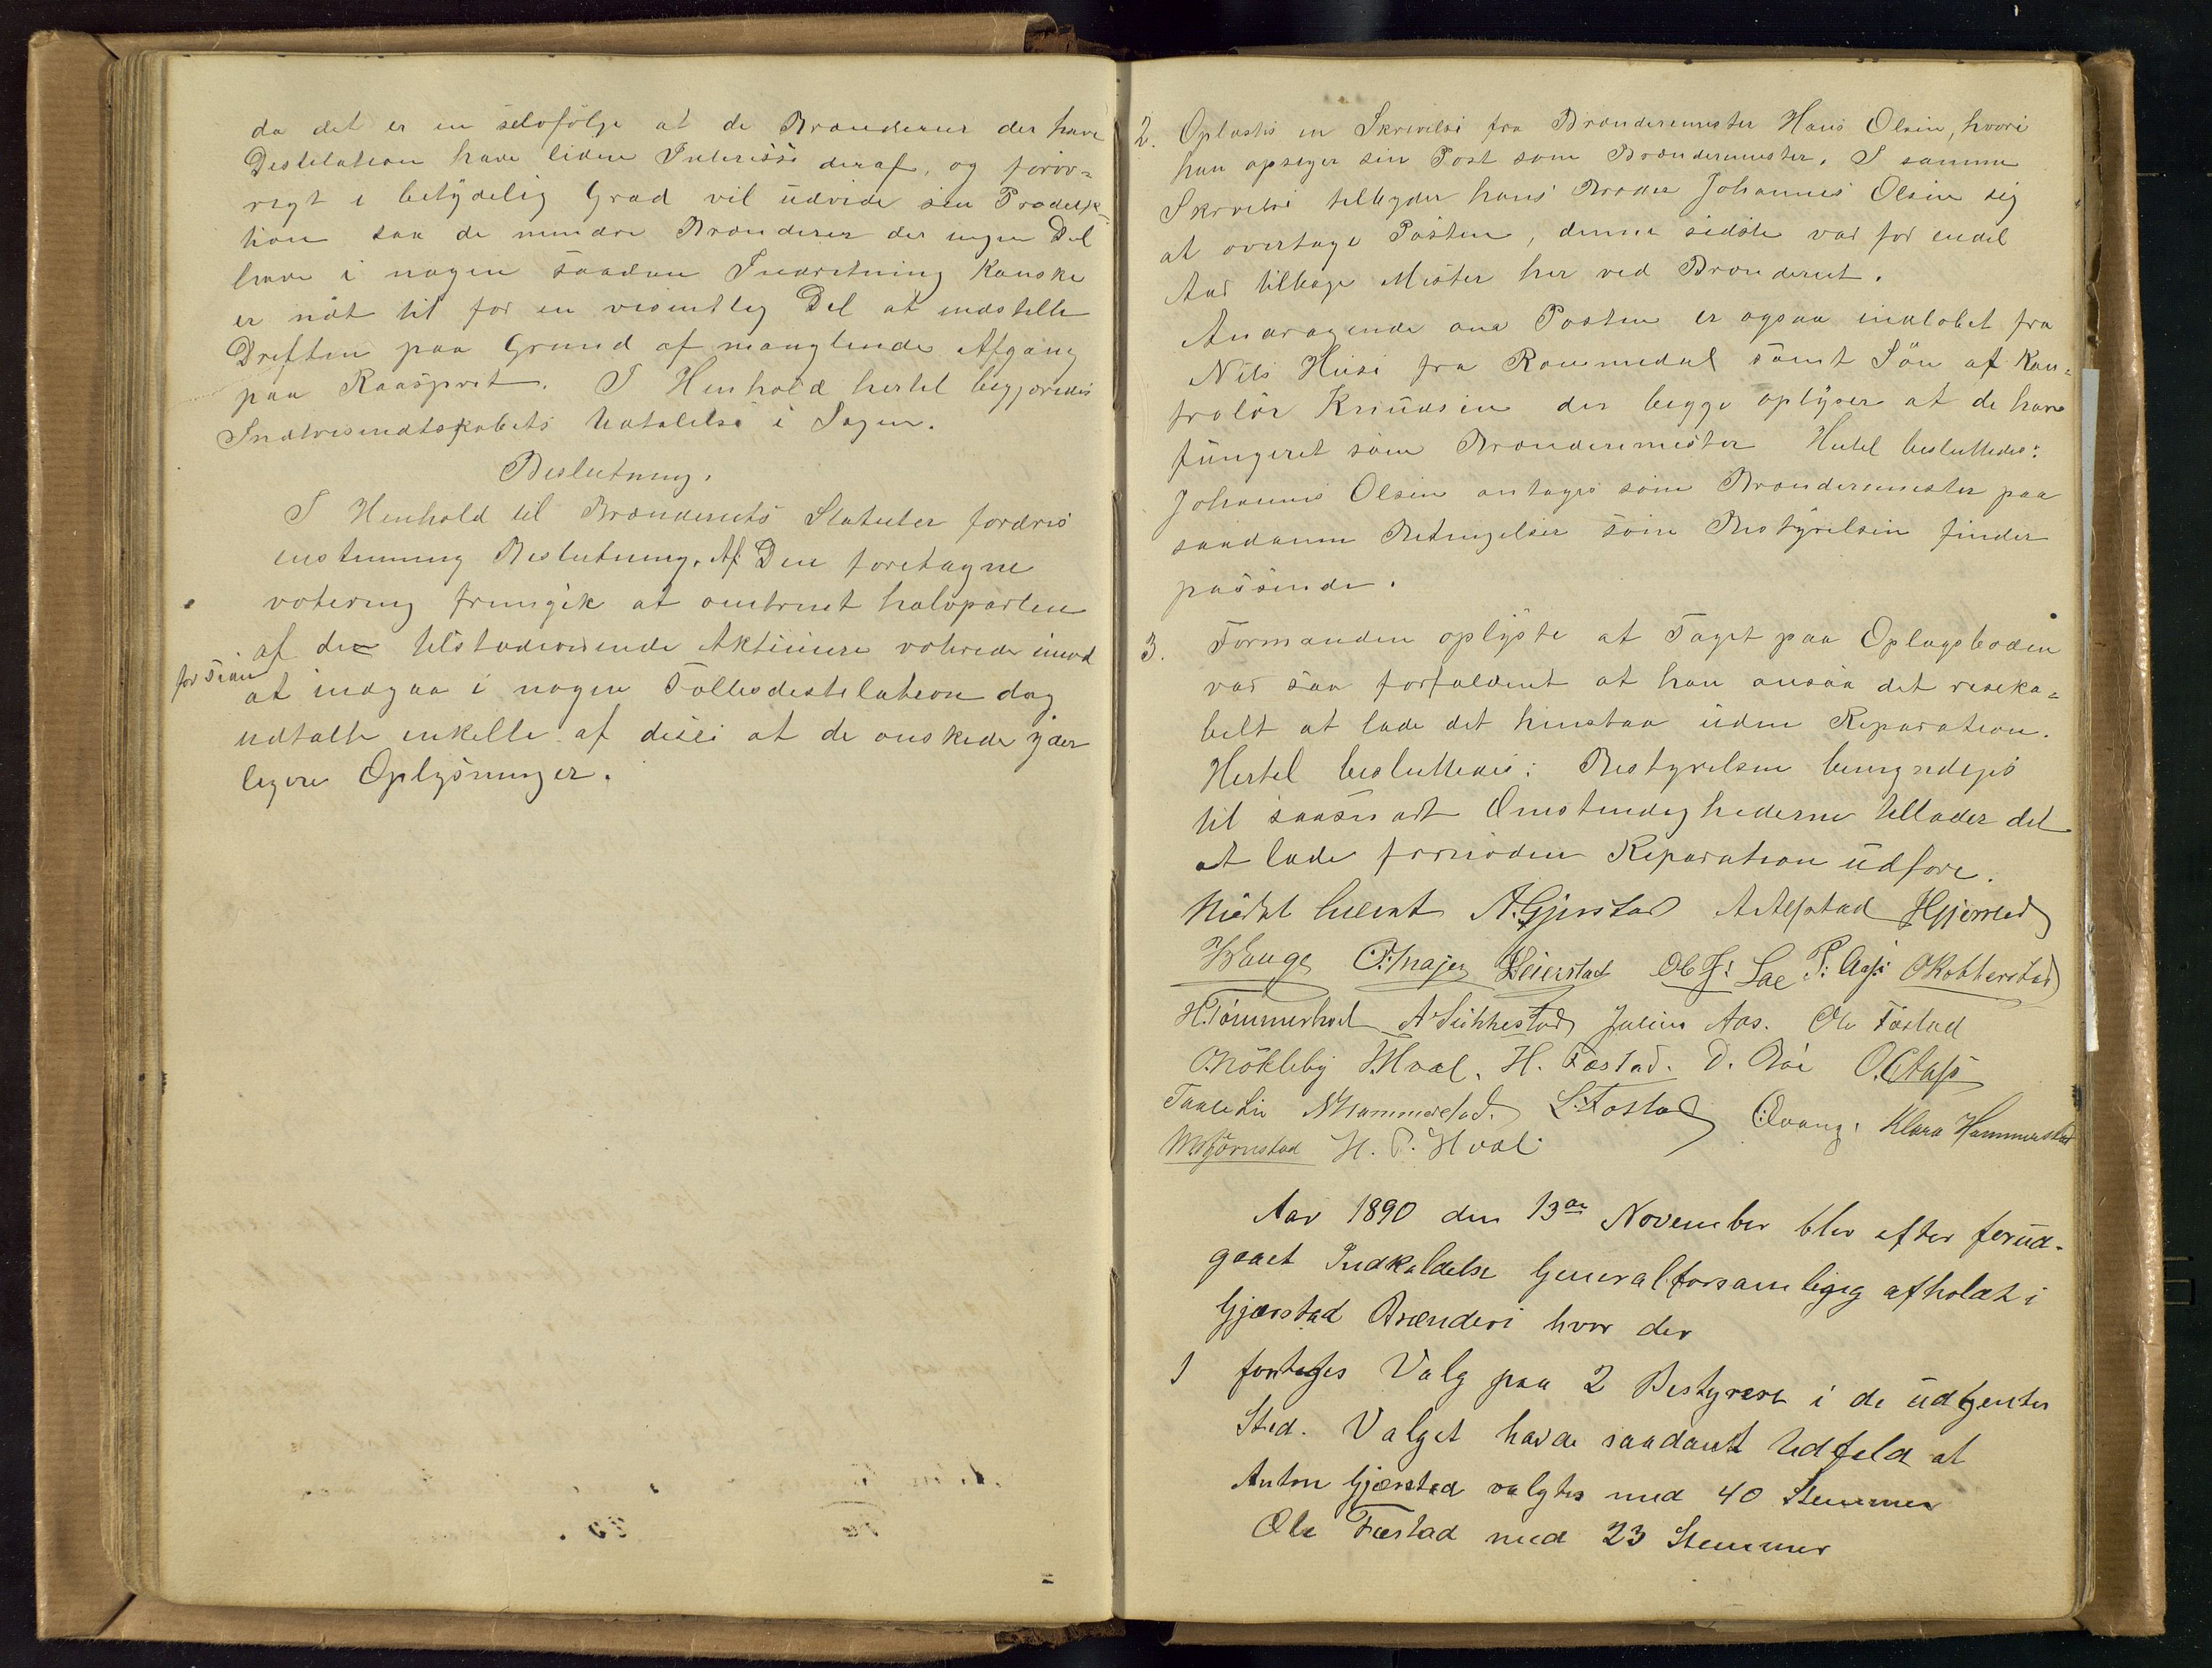 da det er en selvfölge at de Brænderier der have
Destilation have liden Interisse deraf, og forøv-
rigt i betydelig Grad vil udvide sin Produk-
tion saa de mindre Brænderier der ingen Del
have i nogen saadan Indretning Kanske
er nöt til for en visentlig Del at indstille
Driften paa Grund af manglende Afgang
paa Raasprit. I Henhold hertil begjæredes
Intresendtskabets Udtalelse i Sagen.
Beslutning.
I Henhold til Brænderiets Statuter fordres
enstemmig Beslutning. Af Den foretagne
votering fremgik at omtrent halvparten
af de tilstedeværende Aktinære voterede imod
for Tiden
at indgaa i nogen Fællesdestilation dog
udtalte enkelte af disse at de ønskede yder
ligere Oplysninger.
2. Oplæstes en Skrivelse fra Brænderemester Hans Olsen, hvori
han opsiger sin Post som Brændermester. I samme
Skrivelse tilbyder hans Broder Johannes Olsen sig
at overtage Posten, denne sidste var for endel
Aar tilbage Mester her ved Brænderiet.
Andragende om Posten er ogsaa indløbet fra
Nils Huse fra Rommedal samt Sön af Kon-
trolör Knudsen der begge oplyser at de have
fungeret som Brænderimester Hertil besluttedes:
Johannes Olsen antages som Brændermester paa
saadanne Betingelser som Bestyrelsen finder
passende.
3. Formanden oplyste at Taget paa Oplagsboden
var saa forfaldent at han ansaa det reseka-
belt at lade det henstaa uden Reparation.
Hertel besluttedes: Bestyrelsen bemyndiges
til saasnart Omstendighederne tillader det
at lade fornøden Reparation udføre.
A. Gjerstad A Alfstad
Hauge Seierstad Ole J: Lae P: Aas O Kobberstad
H. Tömmerhol A Sukkestad Julius Aas. Ole Fæstad
O. Nökleby Hval. H. Fæstad. D. O. Aas
Taale Lie N Hammerstad. L. Fæstad Klara Hammerstad
M Bjørnstad H. P. Hval.
Aar 1890 den 13de November blev efter forud-
gaaet Indkaldelse Generalforsamlig afholdt i
Gjærstad Brænderi hvor der
1 fortoges Valg paa 2 Bestyrere i de udtjentes
Sted. Valget havde saadant Udfeld at
Anton Gjærstad valgtes med 40 Stemmer
Ole Fæstad med 23 Stemmer